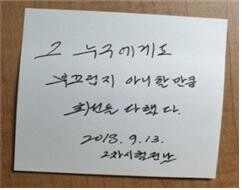 그 누구에게도
부끄럽지 아니할만큼
최선을 다했다.
2018. 9. 13.
2차시험전날